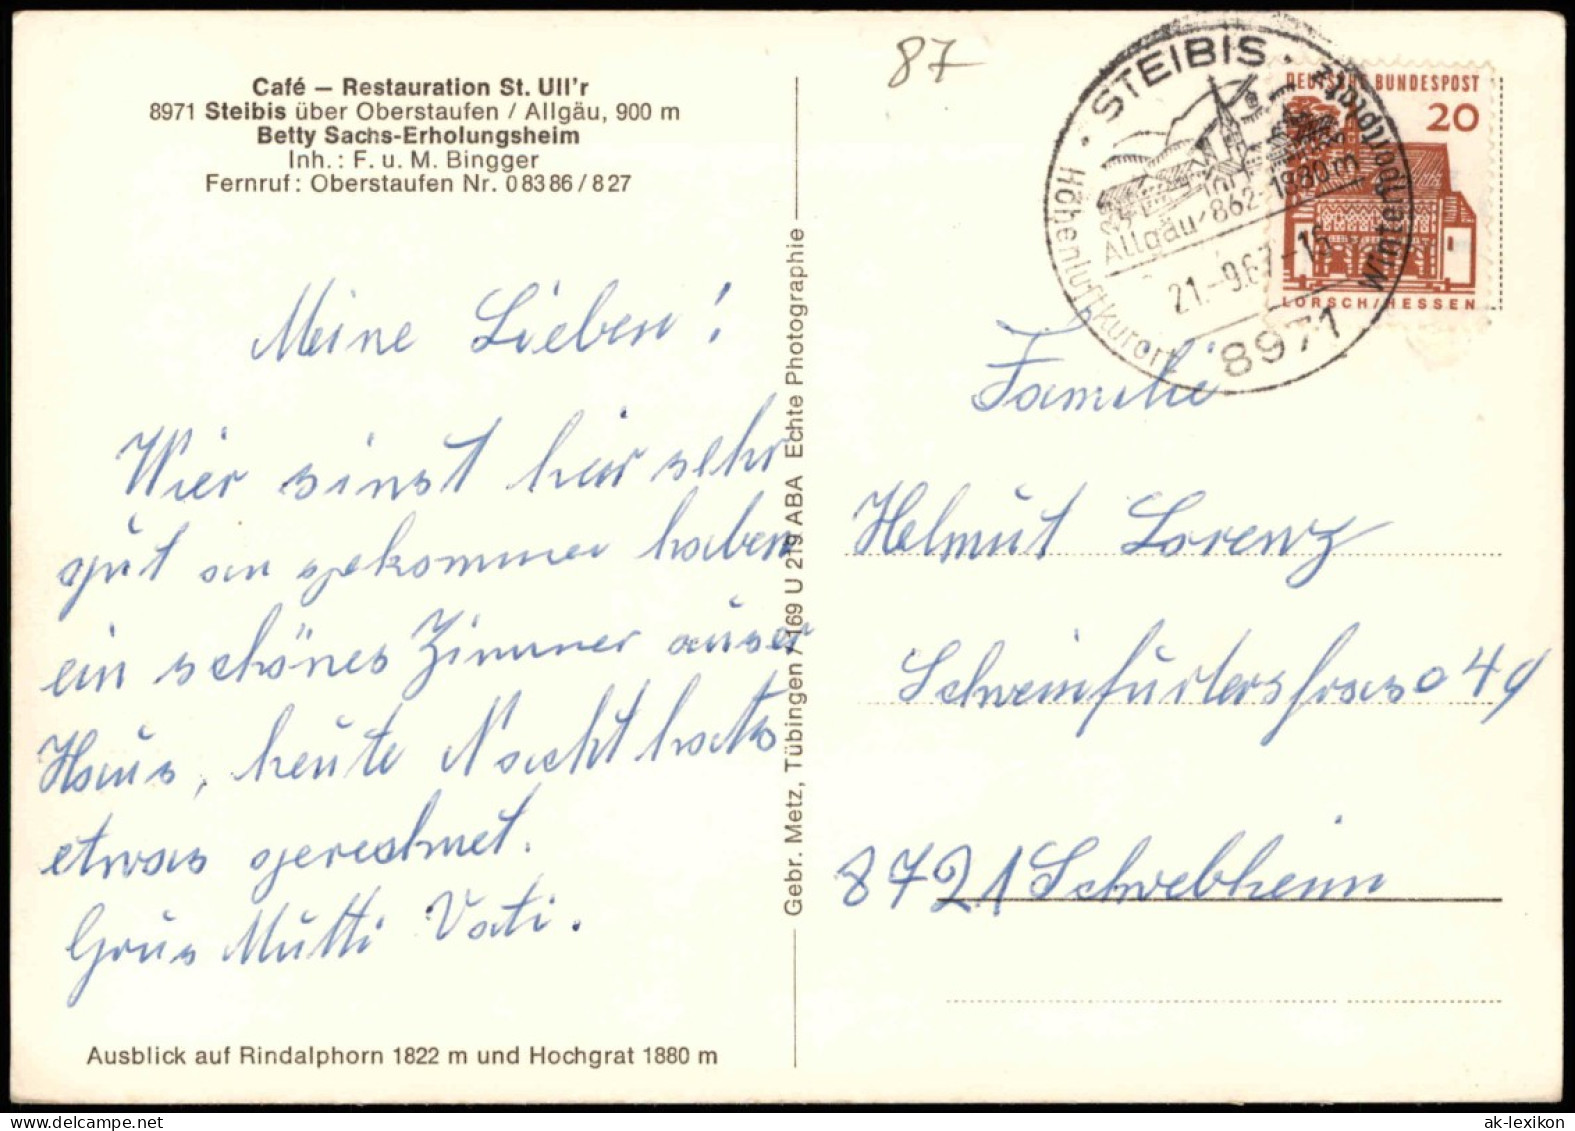 Café – Restauration St. Ull'r
8971 Steibis über Oberstaufen / Allgäu, 900 m
Betty Sachs-Erholungsheim
Inh.: F. u. M. Bingger
Fernruf: Oberstaufen Nr. 08386/827
Meine Lieben!
Wier sinst hier sehr
gut an gekommen haben
ein schönes Zimmer auser
Haus, heute Nacht hats
etwas gerechnet.
Grus Mutti Vati.
Ausblick auf Rindalphorn 1822 m und Hochgrat 1880 m
Gebr. Metz, Tübingen / 169 U 219 ABA Echte Photographie
87
STEIBIS
Höhenluftkurort
Wintersportplatz
Allgäu 862-1880 m
21.-9.67-15
8971
DEUTSCHE BUNDESPOST
20
LORSCH/HESSEN
Familie
Helmut Lorenz
Schweinfurterstrase 49
8721 Schwebheim
ak-lexikon